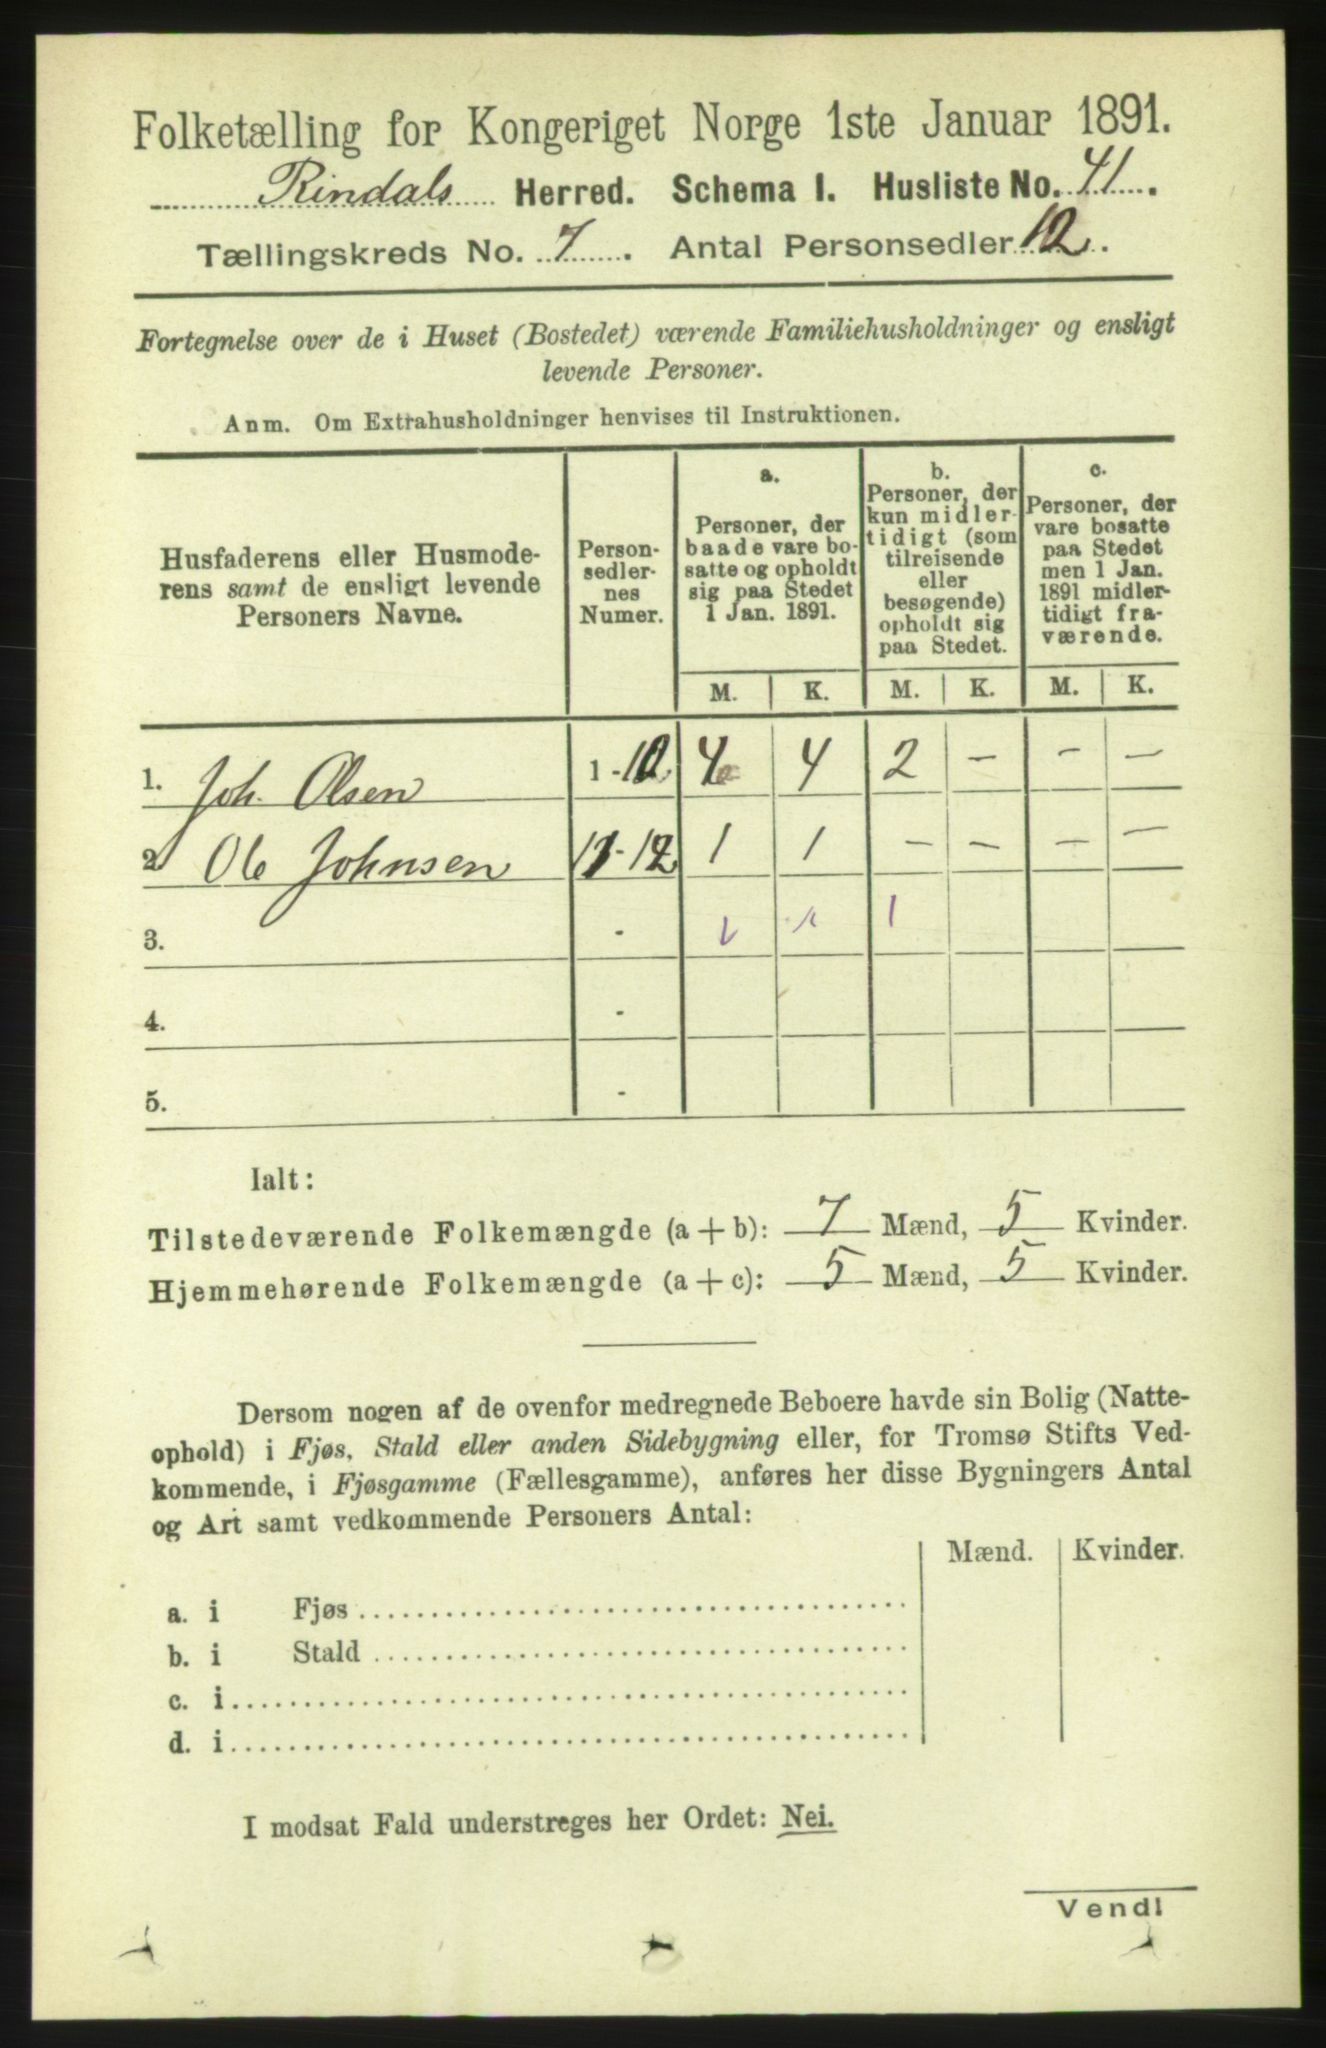 Folketælling for Kongeriget Norge 1ste Januar 1891.
Rindals Herred. Schema I. Husliste No. 41.
Tællingskreds No. 7. Antal Personsedler 12.
Fortegnelse over de i Huset (Bostedet) værende Familiehusholdninger og ensligt
levende Personer.
Anm. Om Extrahusholdninger henvises til Instruktionen.
Husfaderens eller Husmode-
rens samt de ensligt levende
Personers Navne.
Person-
sedler-
nes
Numer.
a.
Personer, der
baade vare bo-
satte og opholdt
sig paa Stedet
1 Jan. 1891.
b.
Personer, der
kun midler-
tidigt (som
tilreisende
eller
besøgende)
opholdt sig
paa Stedet.
c.
Personer, der
vare bosatte
paa Stedet
men 1 Jan.
1891 midler-
tidigt fra-
værende.
M. K. M. K. M. K.
1. Joh. Olsen 1-10 4 4 2 - - -
2. Ole Johnsen 11-12 1 1 - - - -
3. -
4. -
5. -
Ialt:
Tilstedeværende Folkemængde (a + b): 7 Mænd, 5 Kvinder.
Hjemmehørende Folkemængde (a + c): 5 Mænd, 5 Kvinder.
Dersom nogen af de ovenfor medregnede Beboere havde sin Bolig (Natte-
ophold) i Fjøs, Stald eller anden Sidebygning eller, for Tromsø Stifts Ved-
kommende, i Fjøsgamme (Fællesgamme), anføres her disse Bygningers Antal
og Art samt vedkommende Personers Antal:
Mænd. Kvinder.
a. i Fjøs
b. i Stald
c. i
d. i
I modsat Fald understreges her Ordet: Nei.
Vend!